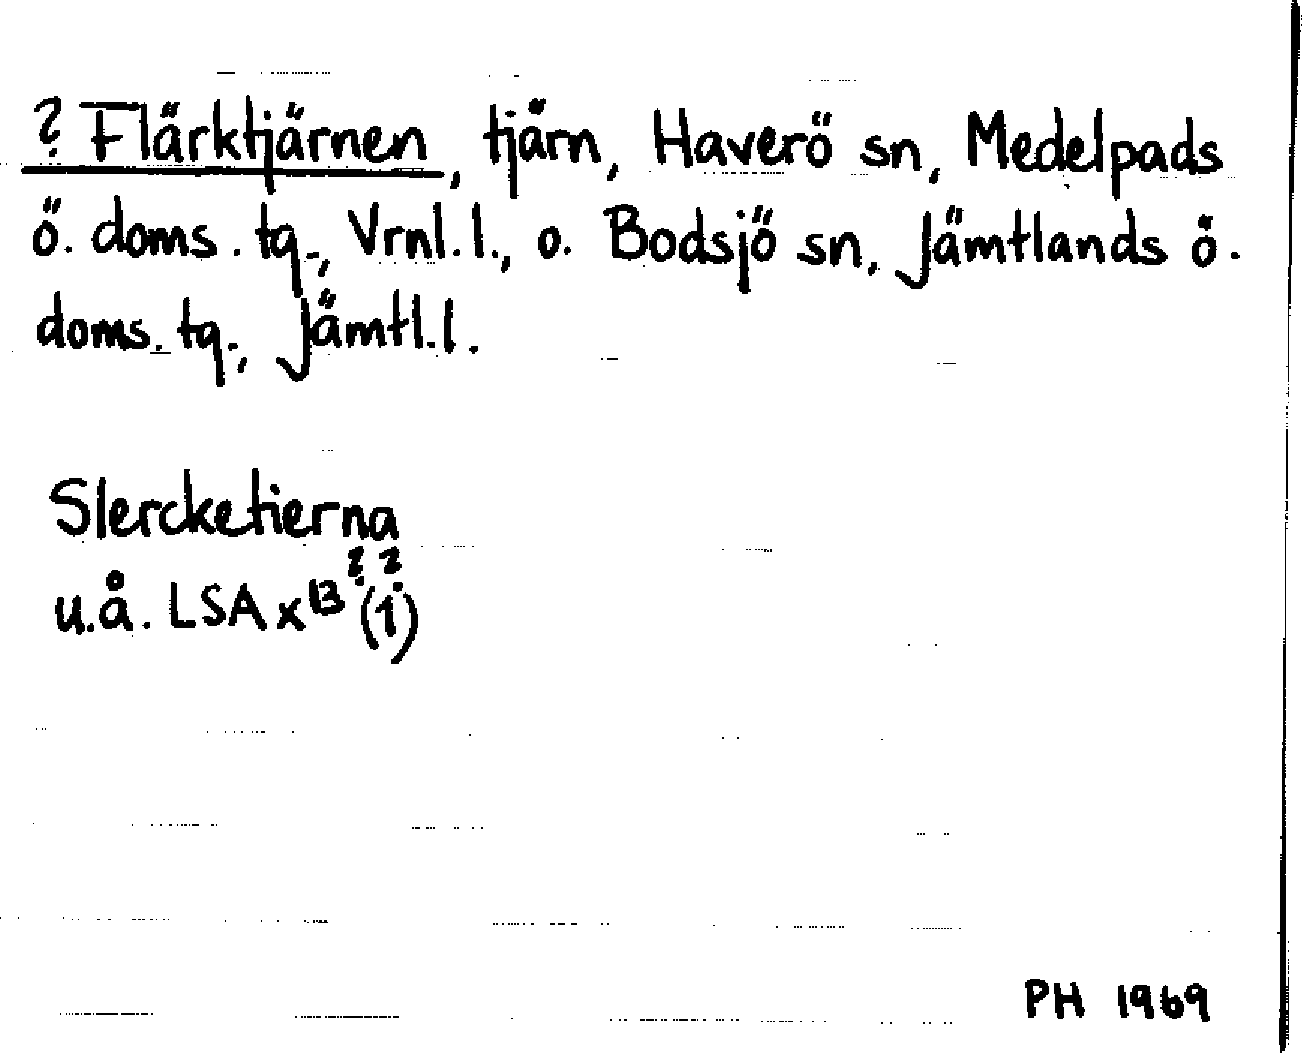 ? Flärktjärnen, tjärn, Haverö sn, Medelpads
ö. doms. tg., Vrnl. l., o. Bodsjö sn, Jämtlands ö.
doms. tg., Jämtl. l.
Slercketierna
u.å. LSA x 13 ? (1) ?
PH 1969